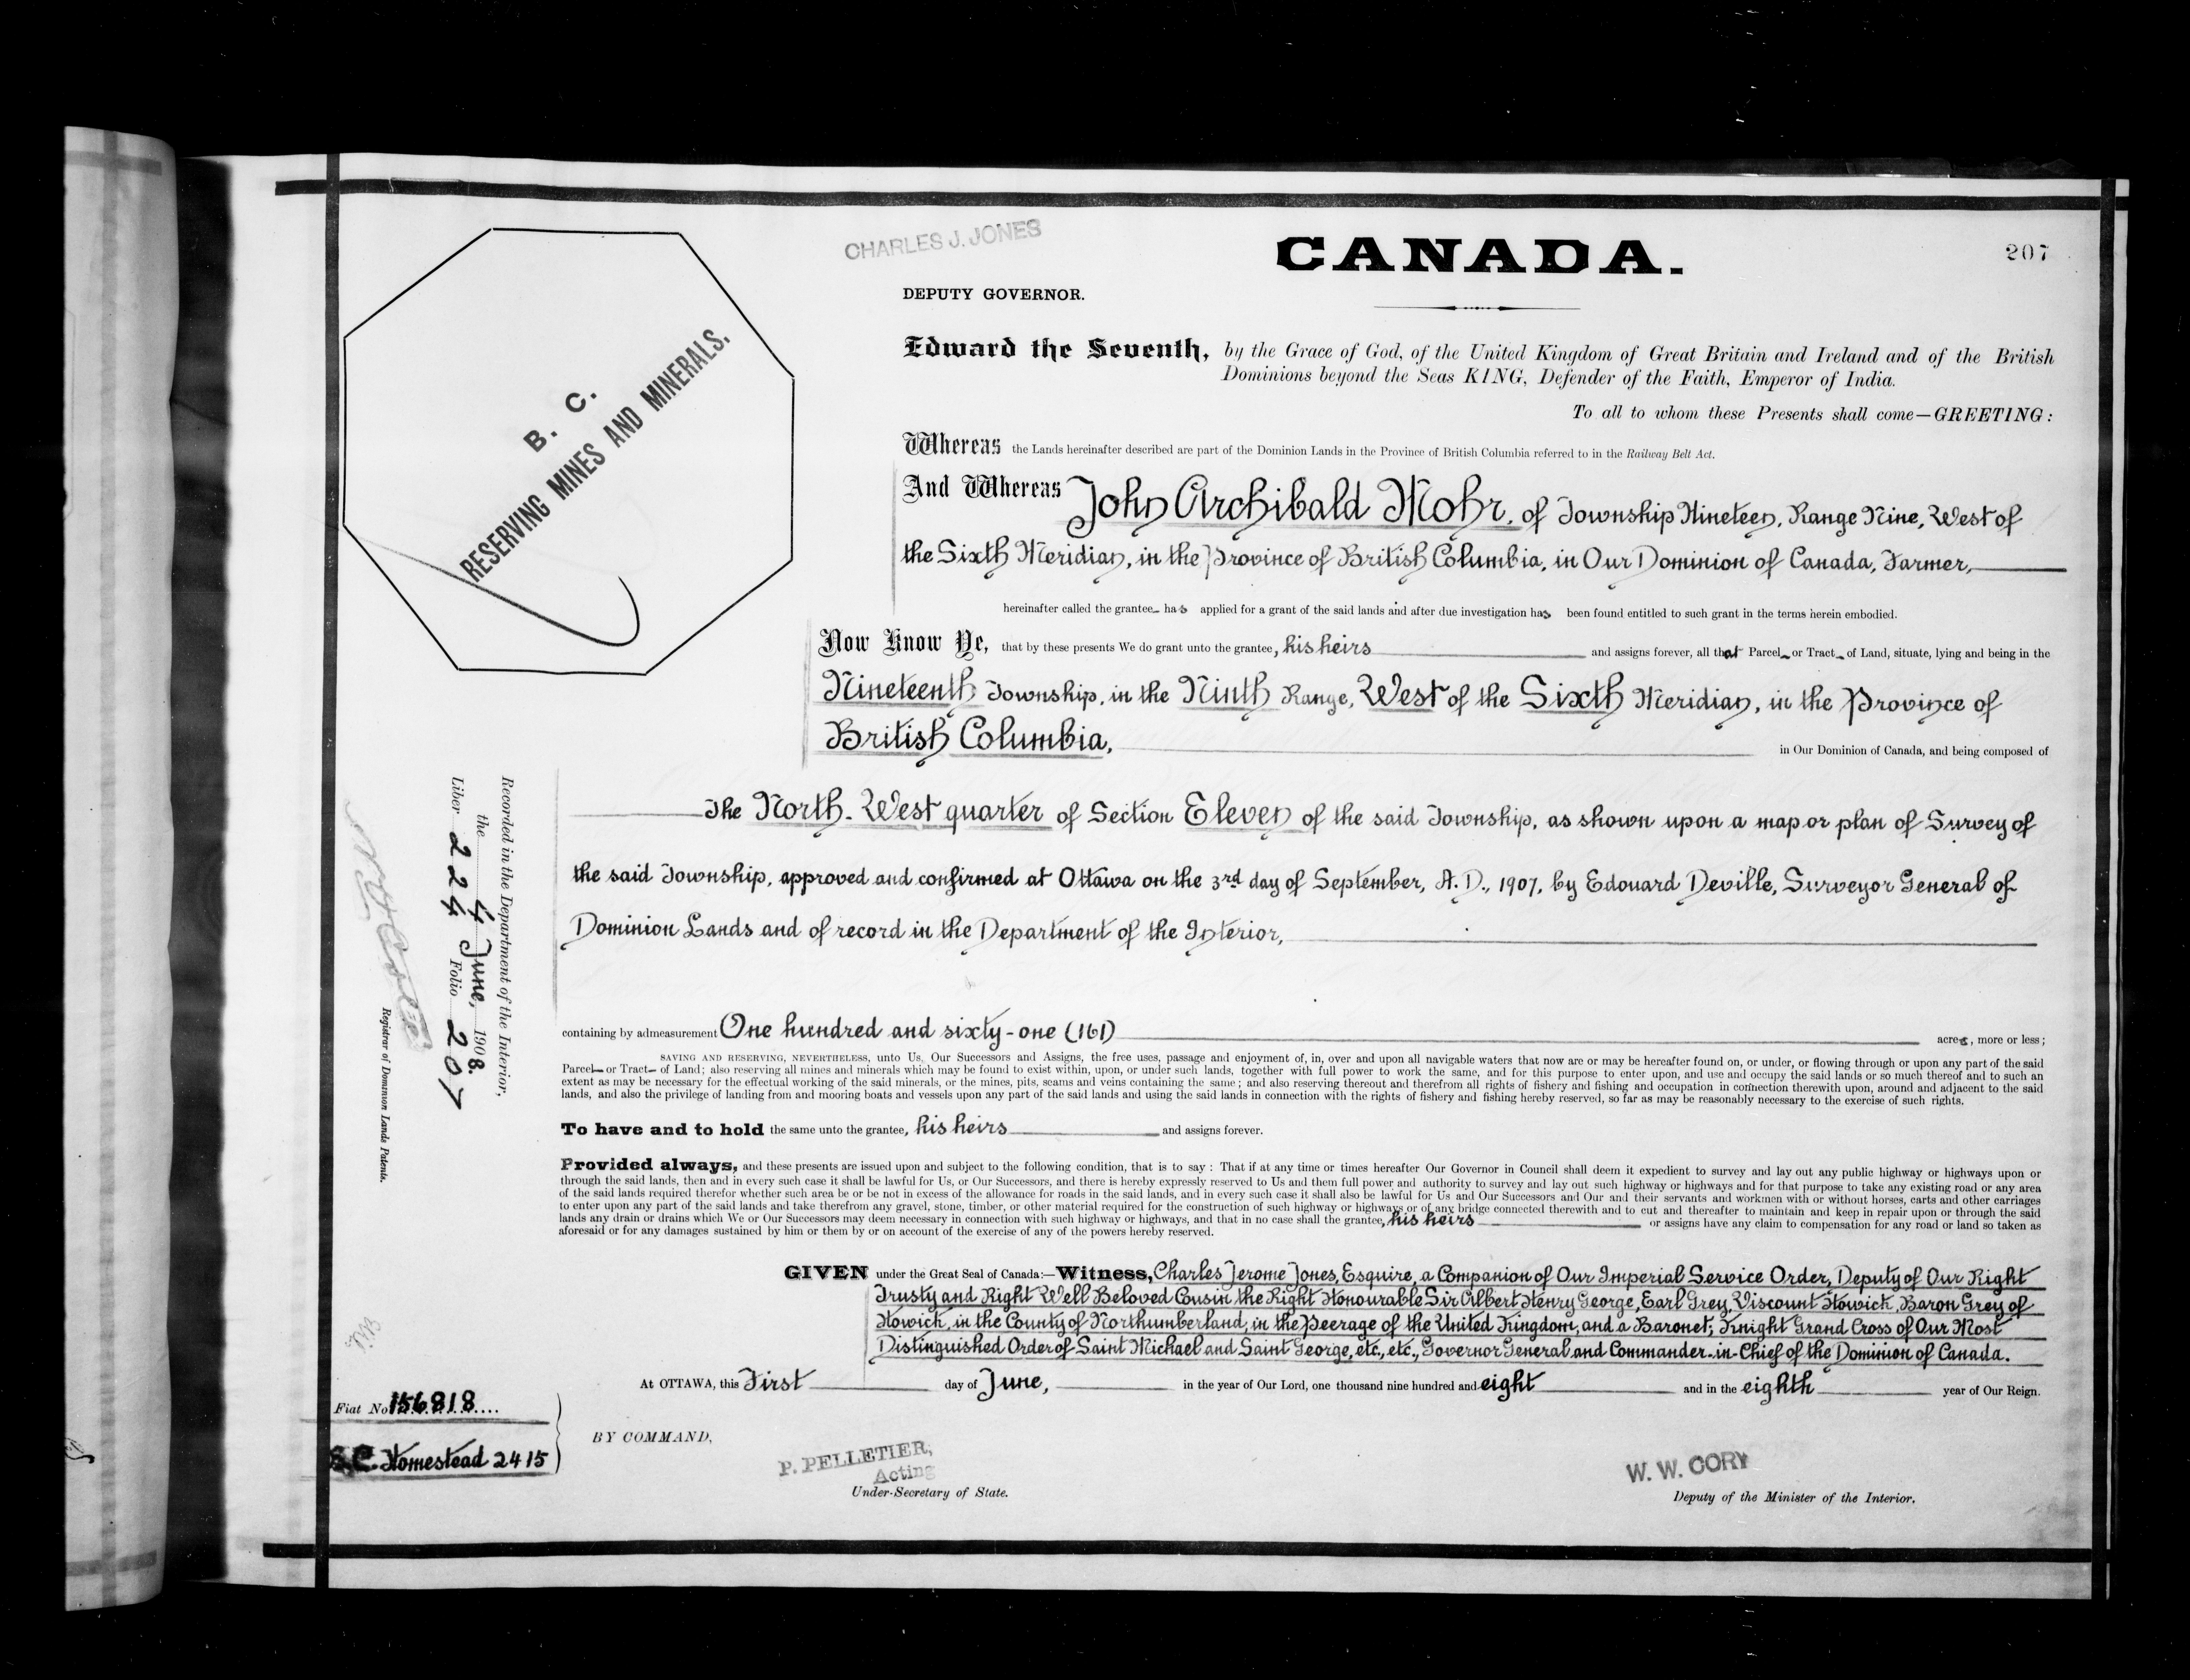 CHARLES J. JONES
CANADA.
207
DEPUTY GOVERNOR.
B. C.
RESERVING MINES AND MINERALS.
Edward the Seventh, by the Grace of God, of the United Kingdom of Great Britain and Ireland and of the British
Dominions beyond the Seas KING, Defender of the Faith, Emperor of India.
To all to whom these Presents shall come—GREETING:
Whereas the Lands hereinafter described are part of the Dominion Lands in the Province of British Columbia referred to in the Railway Belt Act.
And Whereas John Archibald Mohr, of Township Nineteen, Range Nine, West of
the Sixth Meridian, in the Province of British Columbia, in Our Dominion of Canada, Farmer,
hereinafter called the grantee has applied for a grant of the said lands and after due investigation has been found entitled to such grant in the terms herein embodied.
Now Know Ye, that by these presents We do grant unto the grantee, his heirs and assigns forever, all that Parcel or Tract of Land, situate, lying and being in the
Nineteenth Township, in the Ninth Range, West of the Sixth Meridian, in the Province of
British Columbia, in Our Dominion of Canada, and being composed of
The North-West quarter of Section Eleven of the said Township, as shown upon a map or plan of Survey of
the said Township, approved and confirmed at Ottawa on the 3rd day of September, A.D., 1907, by Edouard Deville, Surveyor General of
Dominion Lands and of record in the Department of the Interior,
containing by admeasurement One hundred and sixty-one (161) acres, more or less;
SAVING AND RESERVING, NEVERTHELESS, unto Us, Our Successors and Assigns, the free uses, passage and enjoyment of, in, over and upon all navigable waters that now are or may be hereafter found on, or under, or flowing through or upon any part of the said
Parcel or Tract of Land; also reserving all mines and minerals which may be found to exist within, upon, or under such lands, together with full power to work the same, and for this purpose to enter upon, and use and occupy the said lands or so much thereof and to such an
extent as may be necessary for the effectual working of the said minerals, or the mines, pits, seams and veins containing the same; and also reserving thereout and therefrom all rights of fishery and fishing and occupation in connection therewith upon, around and adjacent to the said
lands, and also the privilege of landing from and mooring boats and vessels upon any part of the said lands and using the said lands in connection with the rights of fishery and fishing hereby reserved, so far as may be reasonably necessary to the exercise of such rights.
To have and to hold the same unto the grantee, his heirs and assigns forever.
Provided always, and these presents are issued upon and subject to the following condition, that is to say: That if at any time or times hereafter Our Governor in Council shall deem it expedient to survey and lay out any public highway or highways upon or
through the said lands, then and in every such case it shall be lawful for Us, or Our Successors, and there is hereby expressly reserved to Us and them full power and authority to survey and lay out such highway or highways and for that purpose to take any existing road or any area
of the said lands required therefor whether such area be or be not in excess of the allowance for roads in the said lands, and in every such case it shall also be lawful for Us and Our Successors and Our and their servants and workmen with or without horses, carts and other carriages
to enter upon any part of the said lands and take therefrom any gravel, stone, timber, or other material required for the construction of such highway or highways or of any bridge connected therewith and to cut and thereafter to maintain and keep in repair upon or through the said
lands any drain or drains which We or Our Successors may deem necessary in connection with such highway or highways, and that in no case shall the grantee, his heirs or assigns have any claim to compensation for any road or land so taken as
aforesaid or for any damages sustained by him or them by or on account of the exercise of any of the powers hereby reserved.
GIVEN under the Great Seal of Canada:—Witness, Charles Jerome Jones, Esquire, a Companion of Our Imperial Service Order, Deputy of Our Right
Trusty and Right Well Beloved Cousin the Right Honourable Sir Albert Henry George, Earl Grey, Viscount Howick, Baron Grey of
Howick, in the County of Northumberland, in the Peerage of the United Kingdom, and a Baronet; Knight Grand Cross of Our Most
Distinguished Order of Saint Michael and Saint George, etc., etc., Governor General and Commander-in-Chief of the Dominion of Canada.
At OTTAWA, this First day of June, in the year of Our Lord, one thousand nine hundred and eight and in the eighth year of Our Reign.
BY COMMAND,
P. PELLETIER,
Acting
Under-Secretary of State.
W. W. CORY
Deputy of the Minister of the Interior.
Recorded in the Department of the Interior,
the 4 June, 1908.
Liber 224 Folio 207
Registrar of Dominion Lands Patents.
Fiat No 156818
Homestead 2415